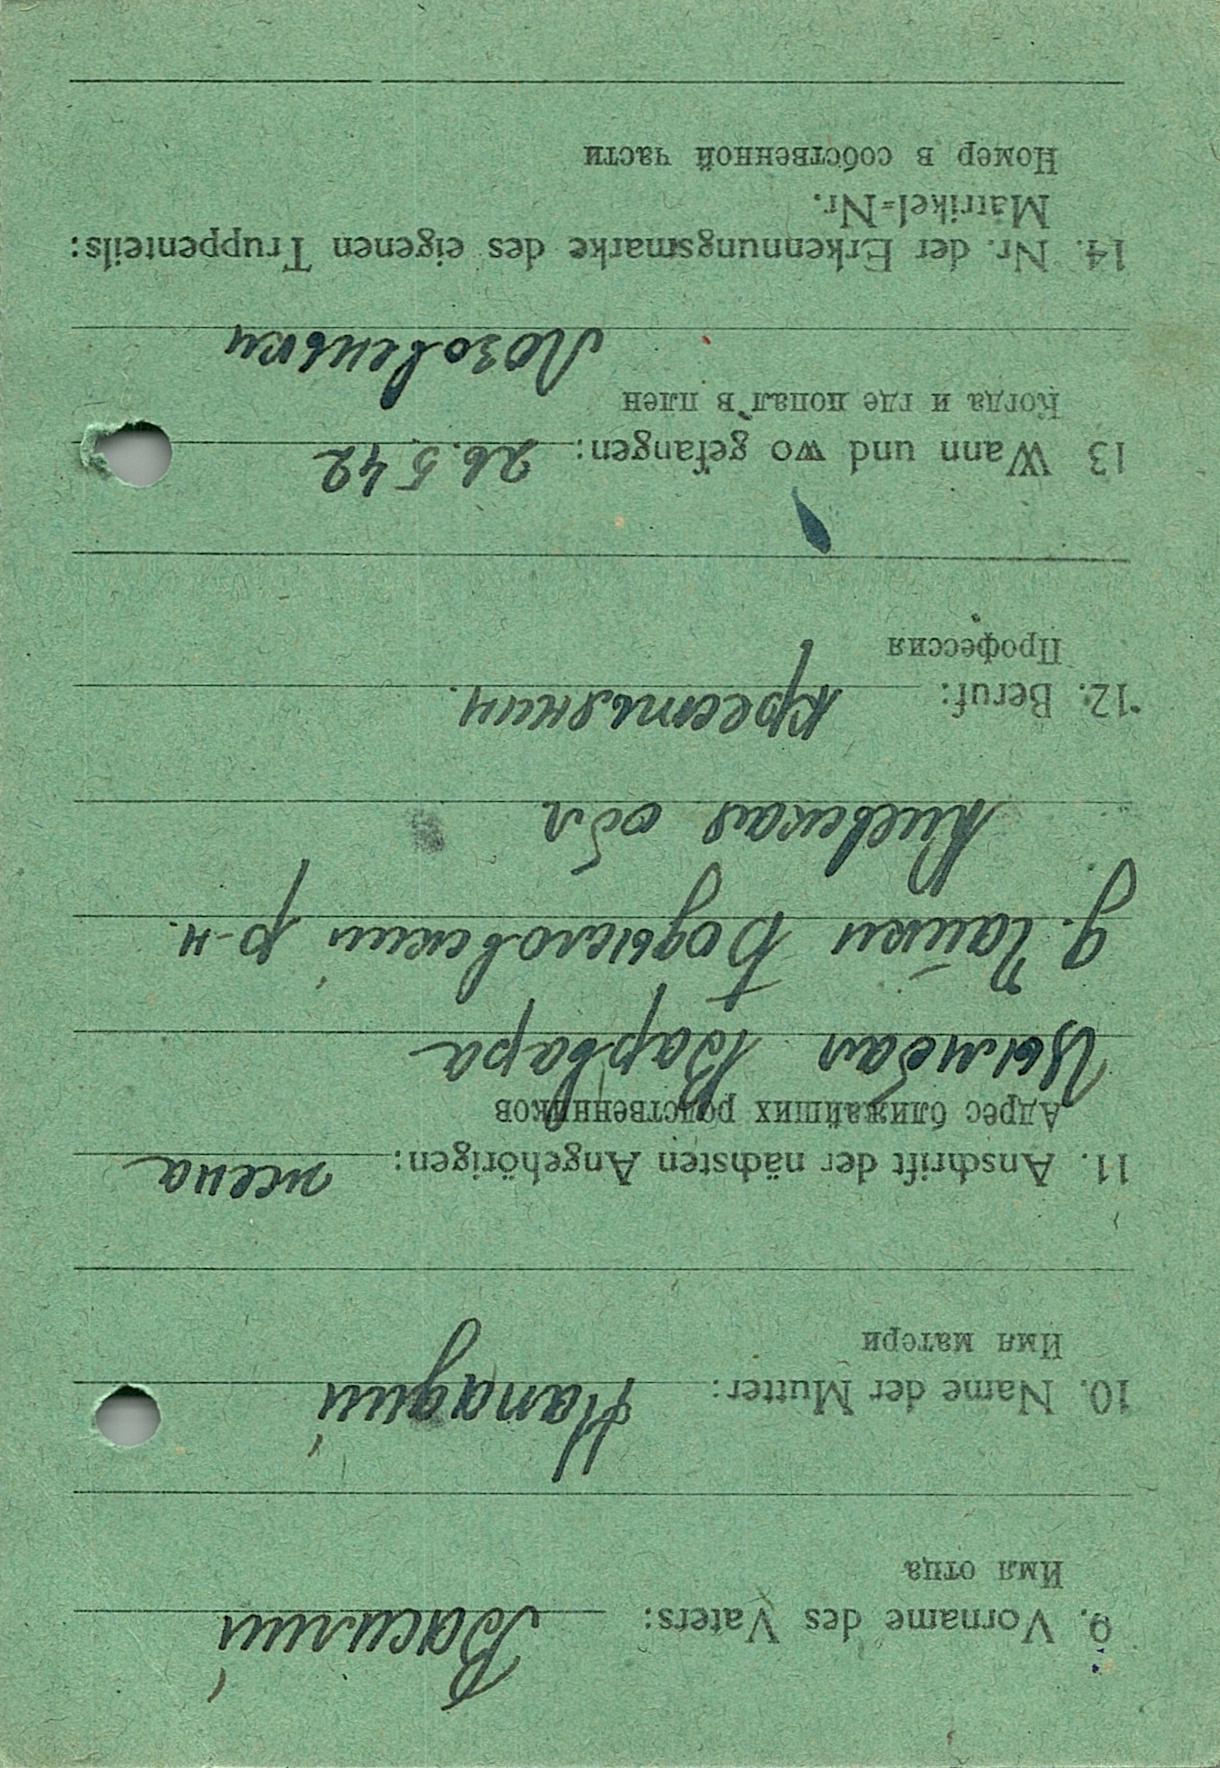 9. Vorname des Vaters: Василий
Имя отца
10. Name der Mutter:
Имя матери
11. Anschrift der nächsten Angehörigen: жена
Адрес ближайших родственников
Цымбал Варвара
д. Чайки р-н.
Киевская обл
12. Beruf: крестьянин.
Профессия
13 Wann und wo gefangen: 26.5.42
Когда и где попал в плен
Лозовеньки
14. Nr. der Erkennungsmarke des eigenen Truppenteils:
Matrikel=Nr.
Номер в собственной части